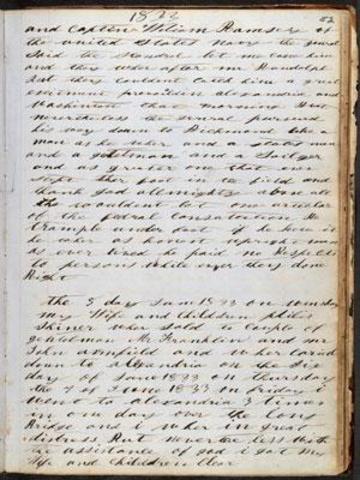 1833 52
and Captin Wiliam Ramsey of
the united States Navy the guard
Said the let me have him
and they wher after Mr Randolph
But they couldent Catch him a great
excitment prevaild in alexandria and
Washington that morning But
nevertheless the general pursued
his way down to Richmond like a
man as he wher and a states man
and a gentelman and a Soilger
and as greater one that ever
stept ther foot on the field and
thank god allmighty above all
the wouldent let one article
of the fedral Consatution be
trample under foot if he knew it
he wher as honest upright man
as ever lived he paid no Respects
to persons while ever they done
Right
the 5 day June 1833 on wensday
my Wife and Children philis
Shiner wher sold to couple of
gentelman Mr Franklin and mr
John armfield and wher caried
down to alexandria on the Six
day of June 1833 on thursday
the 7 of June 1833 on friday i
went to alexandria 3 times
in one day over the long
Bridge and i wher in great
distress But never the less with
the assistance of god i got my
Wife and Childdren Clear